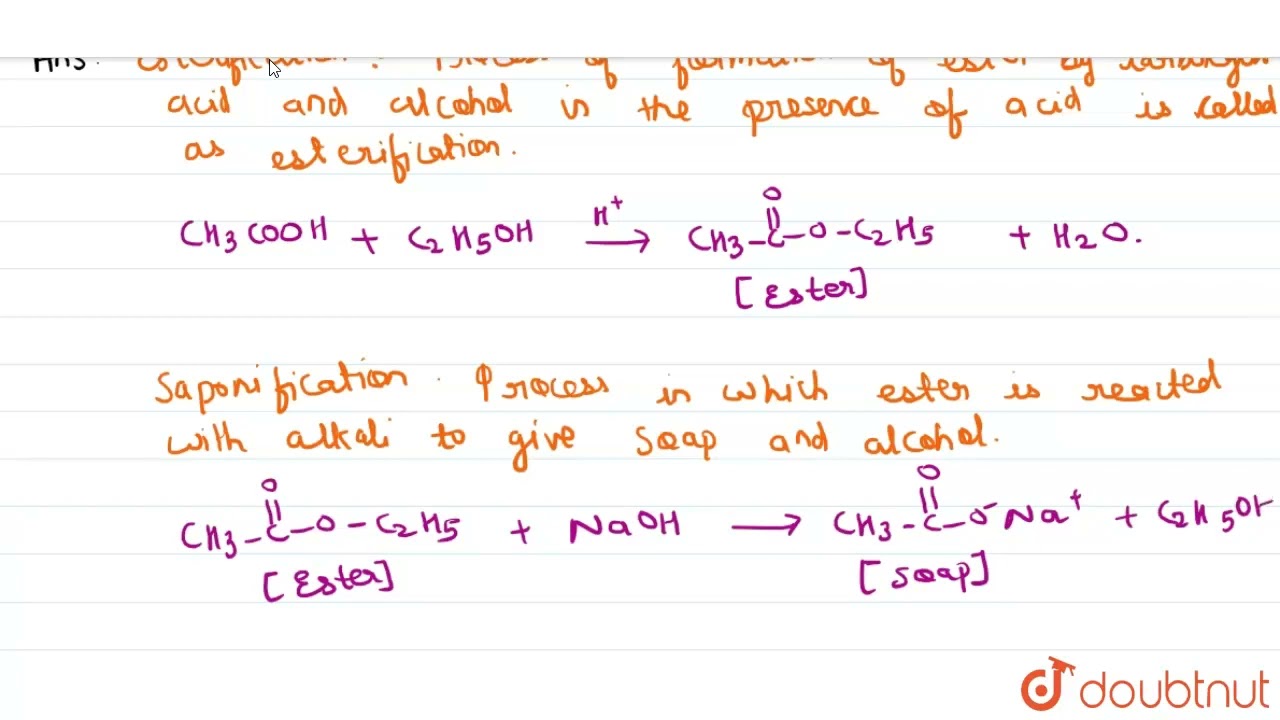 Ans. Esterification : Process of formation of ester by carboxylic
acid and alcohol in the presence of acid is called
as esterification.
CH3COOH + C2H5OH —H+→ CH3-C(=O)-O-C2H5 + H2O.
[Ester]
Saponification. Process in which ester is reacted
with alkali to give soap and alcohol.
CH3-C(=O)-O-C2H5 + NaOH → CH3-C(=O)-O-Na+ + C2H5OH
[Ester] [soap]
doubtnut